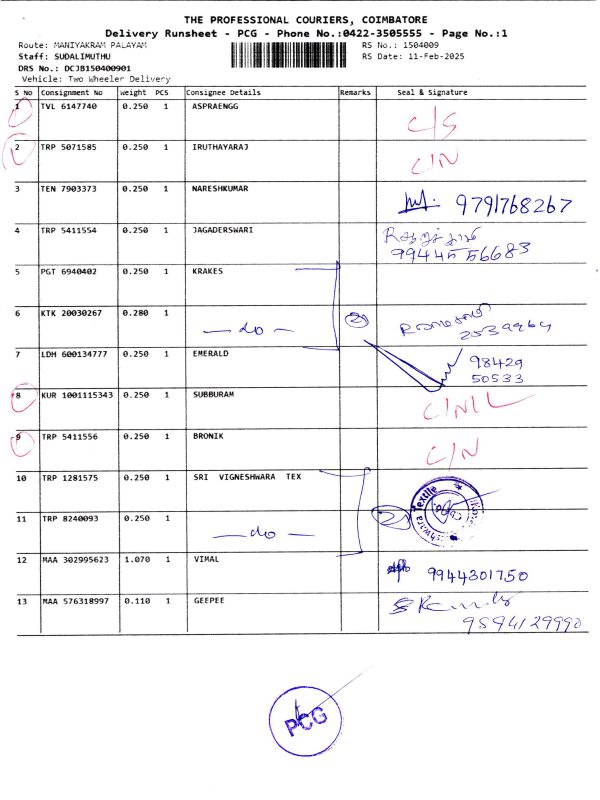 THE PROFESSIONAL COURIERS, COIMBATORE
Delivery Runsheet - PCG - Phone No.:0422-3505555 - Page No.:1
Route: MANIYAKRAM PALAYAM
RS No.: 1504009
Staff: SUDALIMUTHU
RS Date: 11-Feb-2025
DRS No.: DCJB150400901
Vehicle: Two Wheeler Delivery
S No Consignment No Weight PCS Consignee Details Remarks Seal & Signature
1 TVL 6147740 0.250 1 ASPRAENGG C/S
2 TRP 5071585 0.250 1 IRUTHAYARAJ C/N
3 TEN 7903373 0.250 1 NARESHKUMAR 9791768267
4 TRP 5411554 0.250 1 JAGADERSWARI
9944556683
5 PGT 6940402 0.250 1 KRAKES
6 KTK 20030267 0.280 1
- do - 2 2539964
7 LDH 600134777 0.250 1 EMERALD 98429
50533
8 KUR 1001115343 0.250 1 SUBBURAM C/N/L
9 TRP 5411556 0.250 1 BRONIK C/N
10 TRP 1281575 0.250 1 SRI VIGNESHWARA TEX
11 TRP 8240093 0.250 1
- do - 2
12 MAA 302995623 1.070 1 VIMAL 9944301750
13 MAA 576318997 0.110 1 GEEPEE
9594129990
PCG